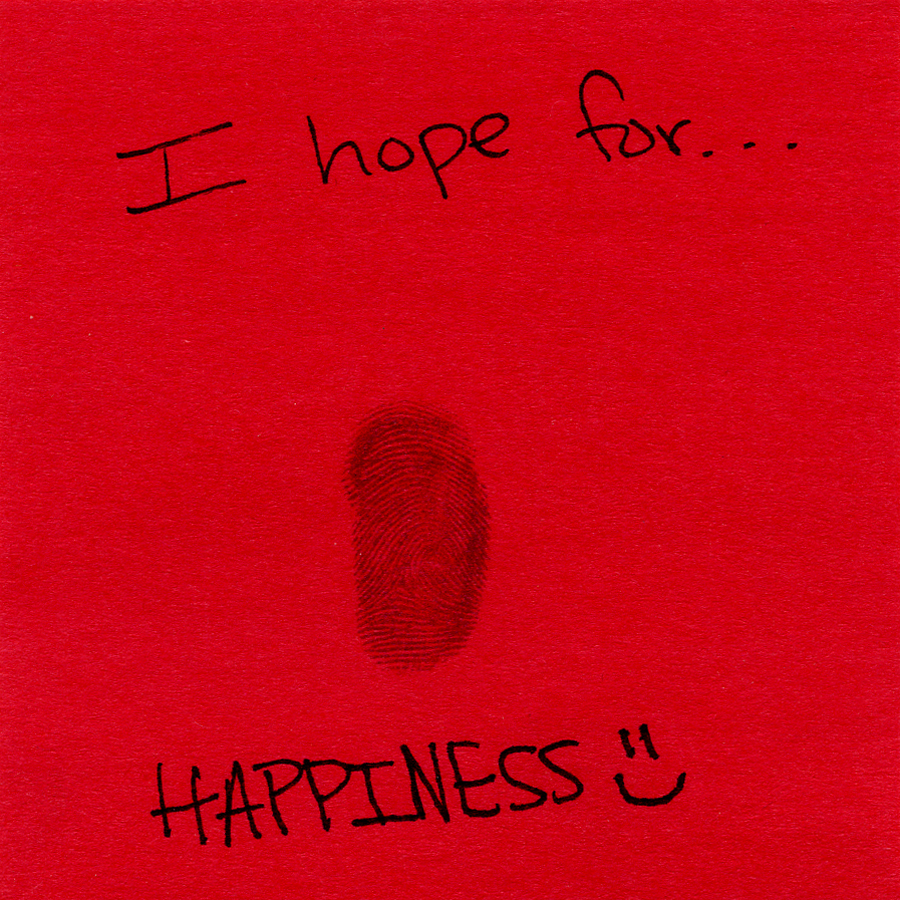 I hope for...
HAPPINESS :)